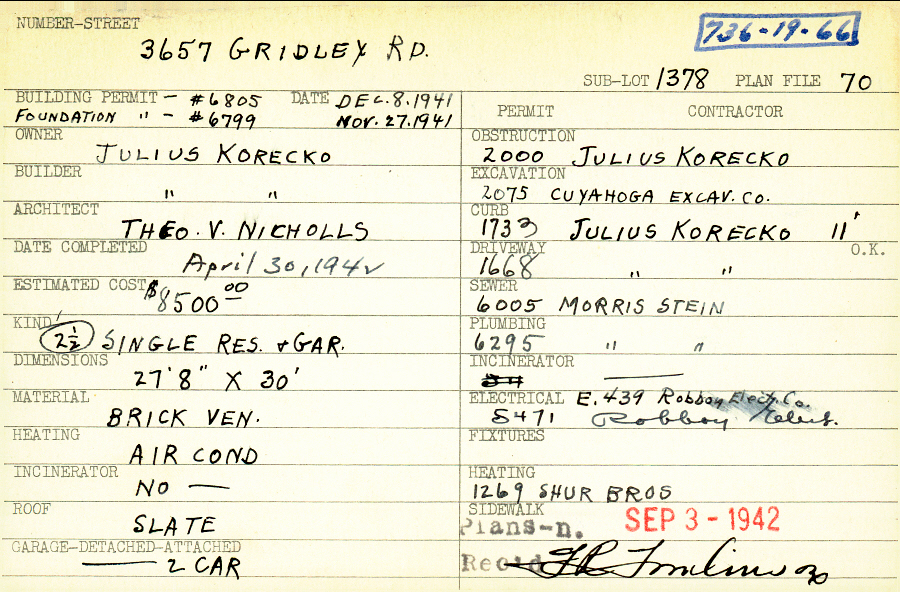 NUMBER-STREET
3657 GRIDLEY RD.
736-19-66
SUB-LOT 1378 PLAN FILE 70
BUILDING PERMIT - #6805 DATE DEC. 8. 1941
FOUNDATION " - #6799 NOV. 27. 1941
OWNER
JULIUS KORECKO
BUILDER
" "
ARCHITECT
THEO. V. NICHOLLS
DATE COMPLETED
April 30, 1942
ESTIMATED COST
$8500 00
KIND
2½ SINGLE RES. & GAR.
DIMENSIONS
27'8" X 30'
MATERIAL
BRICK VEN.
HEATING
AIR COND
INCINERATOR
NO —
ROOF
SLATE
GARAGE-DETACHED-ATTACHED
— 2 CAR
PERMIT CONTRACTOR
OBSTRUCTION
2000 JULIUS KORECKO
EXCAVATION
2075 CUYAHOGA EXCAV. CO.
CURB
1733 JULIUS KORECKO 11'
DRIVEWAY O.K.
1668 " "
SEWER
6005 MORRIS STEIN
PLUMBING
6295 " "
INCINERATOR
—
ELECTRICAL E. 439 Robboy Elect. Co.
5471 Robboy Elect.
FIXTURES
HEATING
1269 SHUR BROS
SIDEWALK
Plans-n. SEP 3 - 1942
Rec'd F R Tomlinson